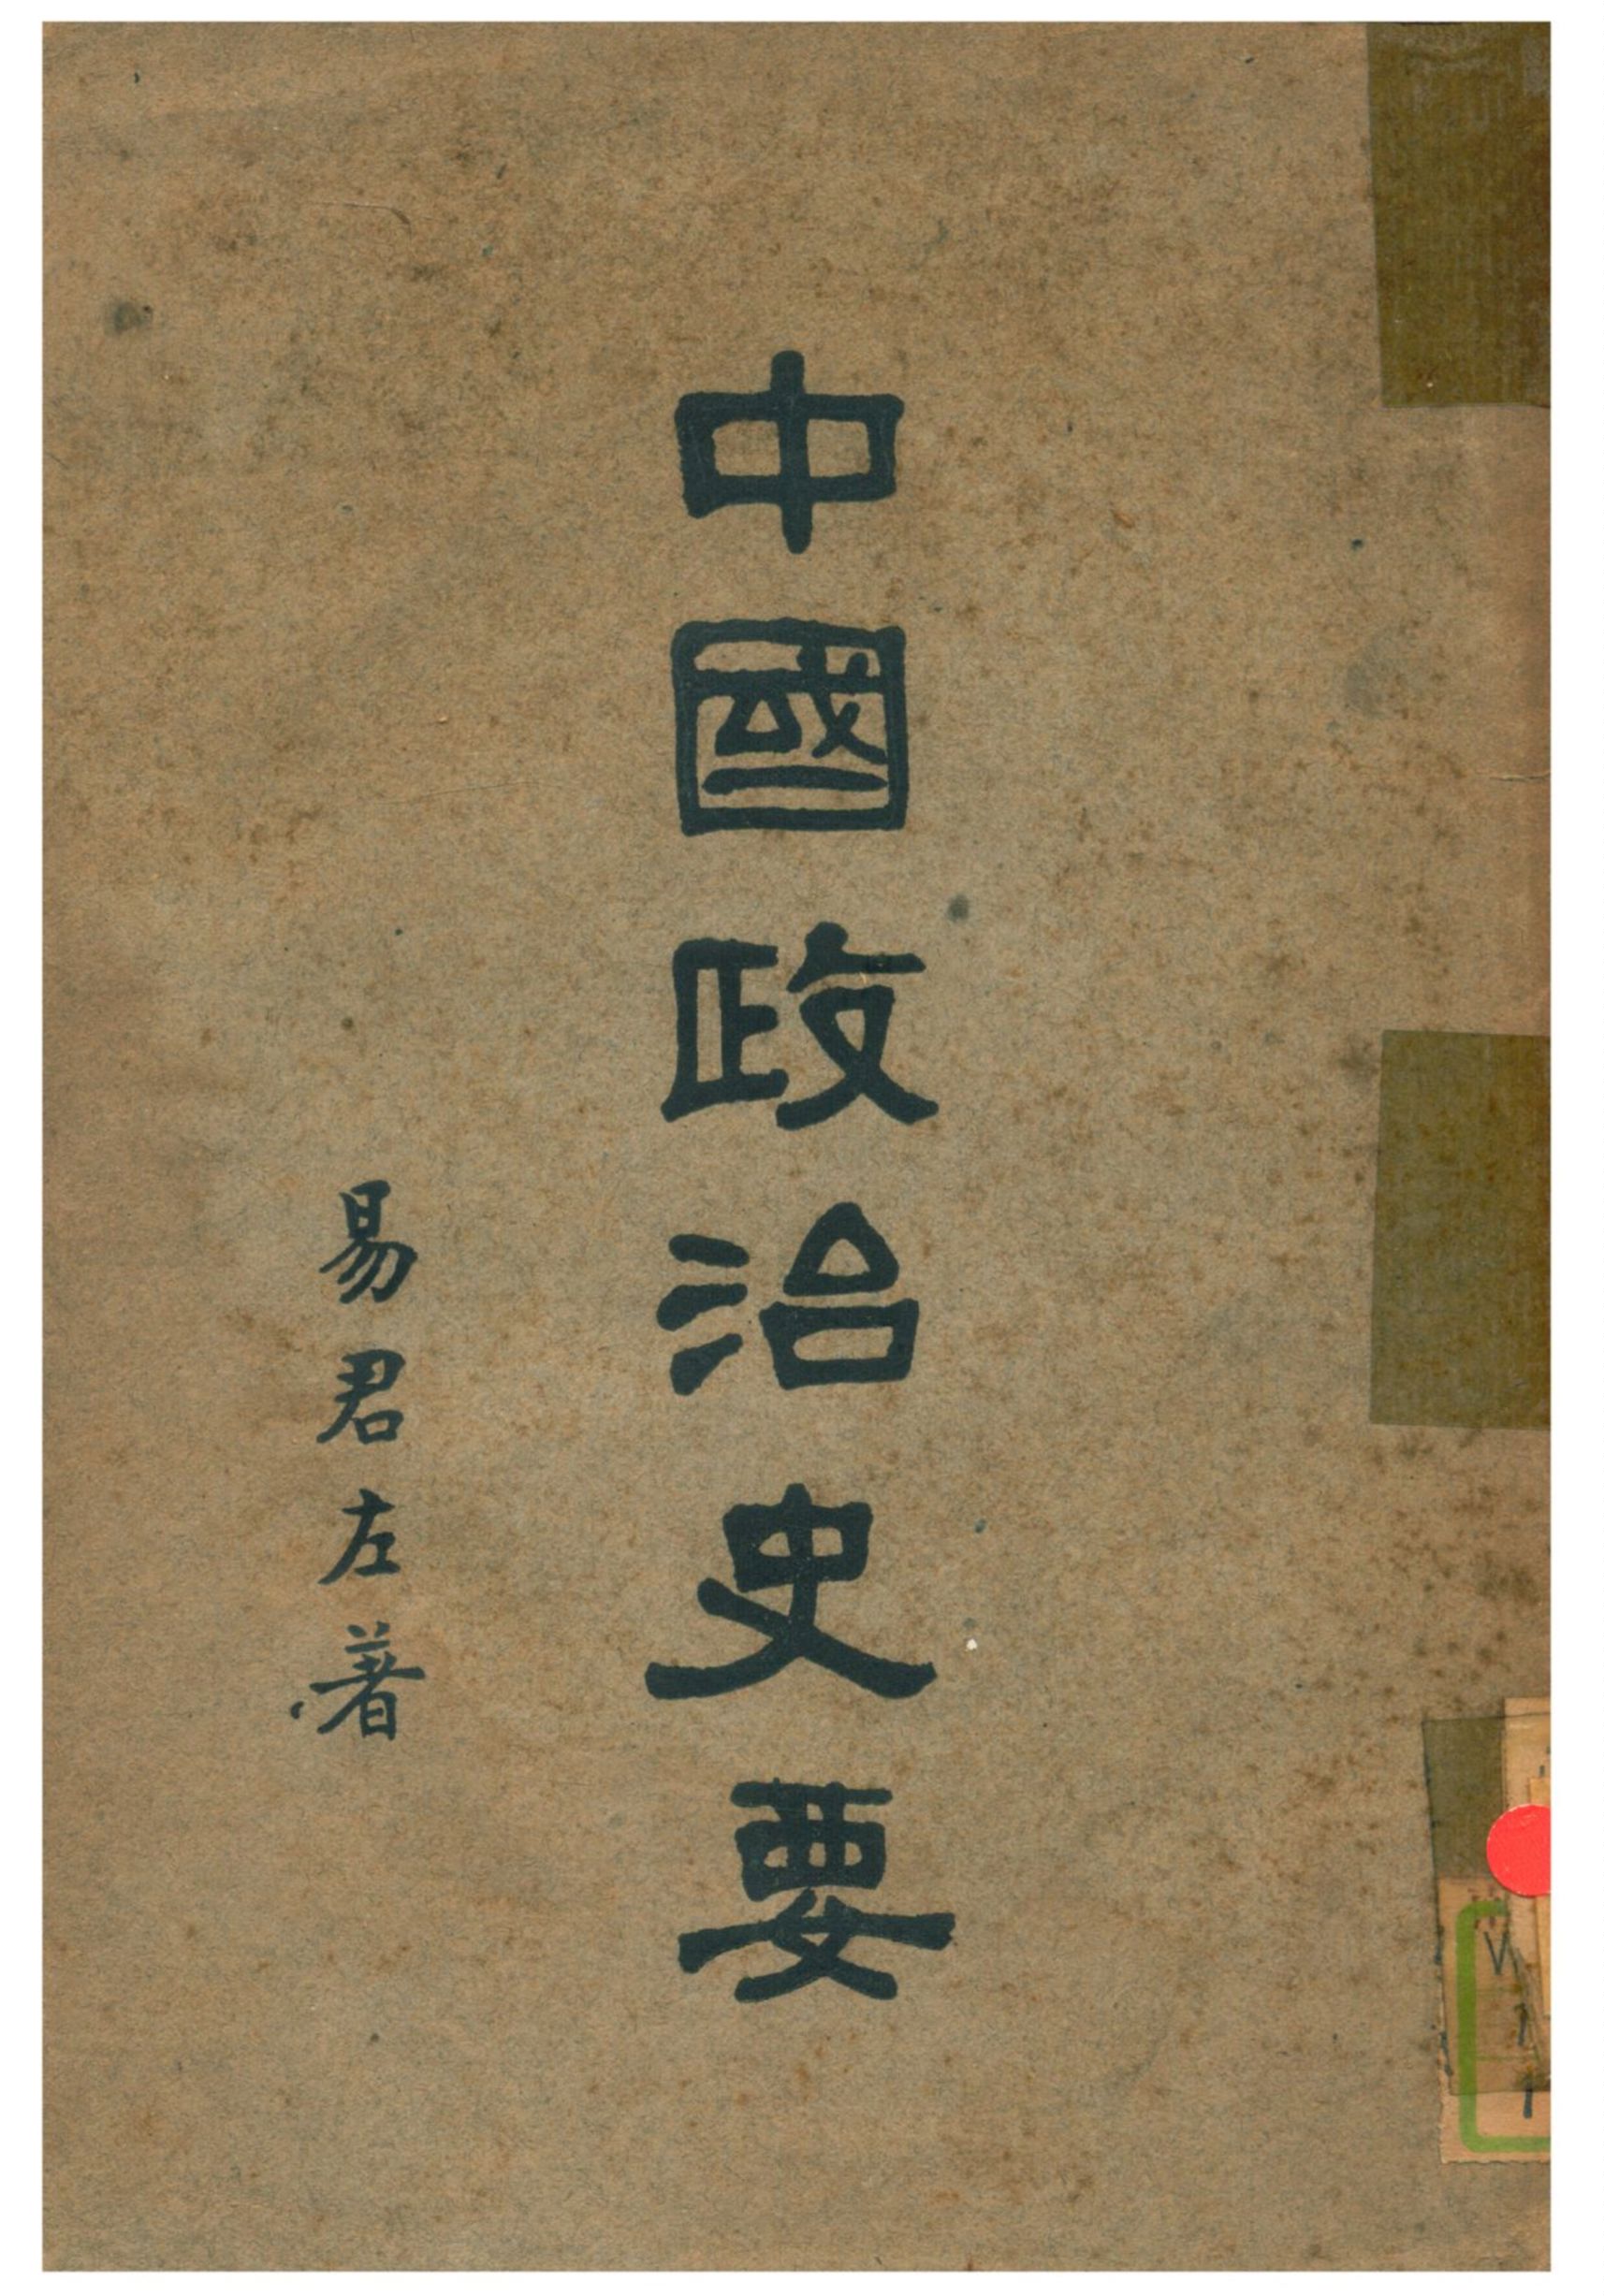 中國政治史要
易君左著